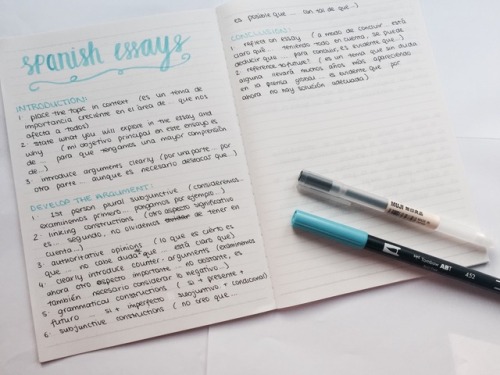 spanish essays
INTRODUCTION:
1. place the topic in context (es un tema de
importancia creciente en el área de ... que nos
afecta a todos)
2. state what you will explore in the essay and
why (mi objetivo principal en este ensayo es
de ... para que tengamos una mayor comprensión
de ...)
3. introduce arguments clearly (por una parte ... por
otra parte ... aunque es necesario destacar que ...)
DEVELOP THE ARGUMENT:
1. 1st person plural subjunctive (consideremos ...
examinemos primero ... pongamos por ejemplo ...)
2. linking constructions (otro aspecto significativo
es ... segundo, no olvidemos de tener en
cuenta ...)
3. authoritative opinions (lo que es cierto es
que ... no cabe duda que ... está claro que)
4. clearly introduce counter arguments (examinemos
ahora otro aspecto importante ... no obstante, es
también necesario considerar lo negativo ...)
5. grammatical constructions (si + presente +
futuro ... si + imperfecto subjuntivo + condicional)
6. subjunctive constructions (no creo que ...
es posible que ... (un tal de que ...)
CONCLUSION:
1. reflect on essay (a modo de concluir ... está
claro que ... teniendo todo en cuenta, se puede
deducir que ... para concluir, es evidente que ...)
2. reference to future? (es un tema que sin duda
alguna llevará muchos años más apareciendo
en la prensa global ... es evidente que por
ahora no hay solución adecuada)
MUJI
Tombow ABT
452